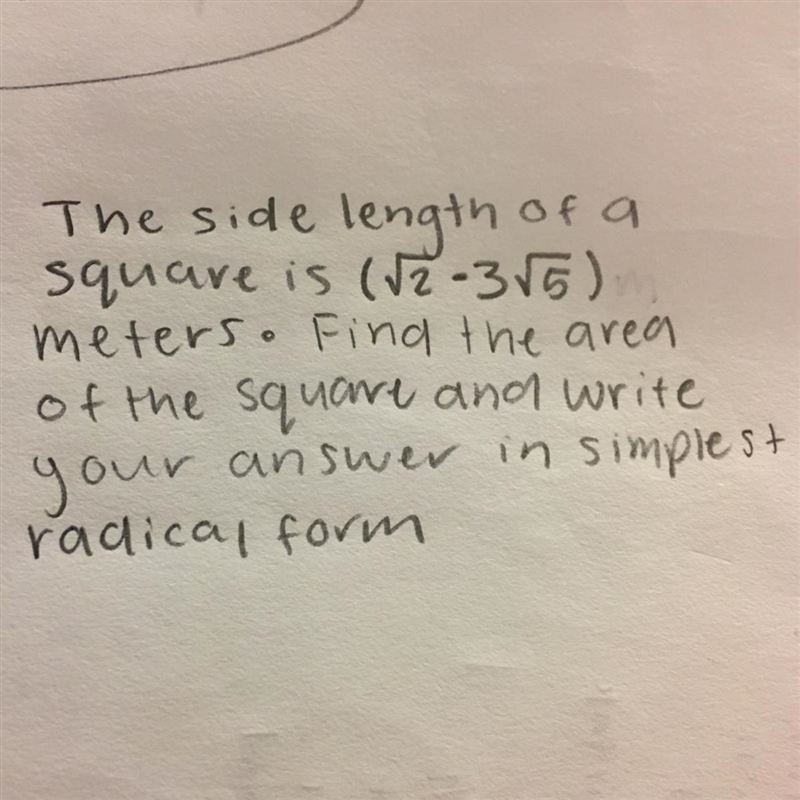 The side length of a
square is (√2 - 3√5)
meters. Find the area
of the square and write
your answer in simplest
radical form